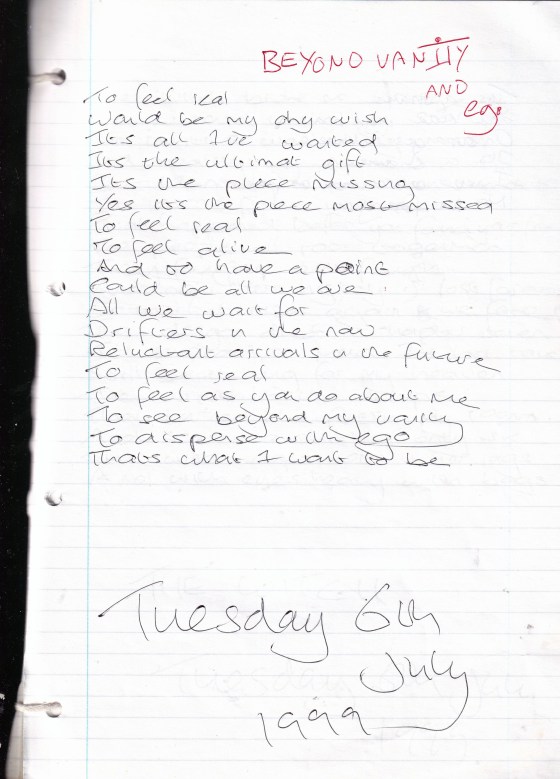 BEYOND VANITY
AND
ego.
To feel real
Would be my only wish
Its all I've wanted
Its the ultimat gift
Its the piece missing
Yes its the piece most missed
To feel real
To feel alive
And to have a point
Could be all we are.
All we wait for
Drifters in the now
Reluctant arrivals in the future
To feel real
To feel as you do about me
To see beyond my vanity
To disperse with ego
Thats what I want to be
Tuesday 6th
July
1999